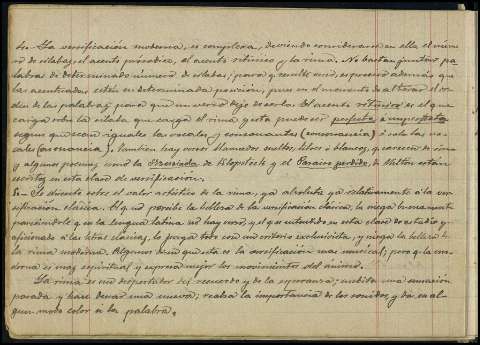 4.- La versificación moderna, es compleja, debiendo considerarse en ella el núme
ro de sílabas, el acento prosódico, el acento rítmico y la rima. No bastan juntar pa
labras de determinado número de sílabas; para que resulte verso, es preciso además que
las acentuadas estén en determinada posición, pues en el momento de alterar el or
den de las palabras, para que un verso deje de serlo. El acento rítmico es el que
carga sobre la sílaba que carga el rima y esta puede ser perfecta ó imperfecta
según que sean iguales las vocales y consonantes (consonancia) ó solo las vo-
cales (asonancia); también hay versos llamados sueltos, libres ó blancos, que carecen de rima
y algunos poemas, como la Mesiada de Klopstock y el Paraíso perdido, de Milton están
escritos en esta clase de versificación.
5.- Se discute sobre el valor artístico de la rima, ya absoluta ya relativamente á la ver
sificación clásica. El q. no percibe la belleza de la versificación clásica, la niega buenamente
pareciéndole q. en la lengua latina no hay verso, y el q. es entendido en esta clase de estudio y
aficionado á las letras clásicas, lo juzga todo con un criterio exclusivista, y niega la belleza de
la rima moderna. Algunos dicen que esta es la versificación más musical; pero q. la mo
derna es más espiritual y expresa mejor los movimientos del ánimo.
La rima es un despertador del recuerdo y de la esperanza; recibe una sensación
pasada y hace desear una nueva; realza la importancia de los sonidos, y da en al-
gun modo color á la palabra.